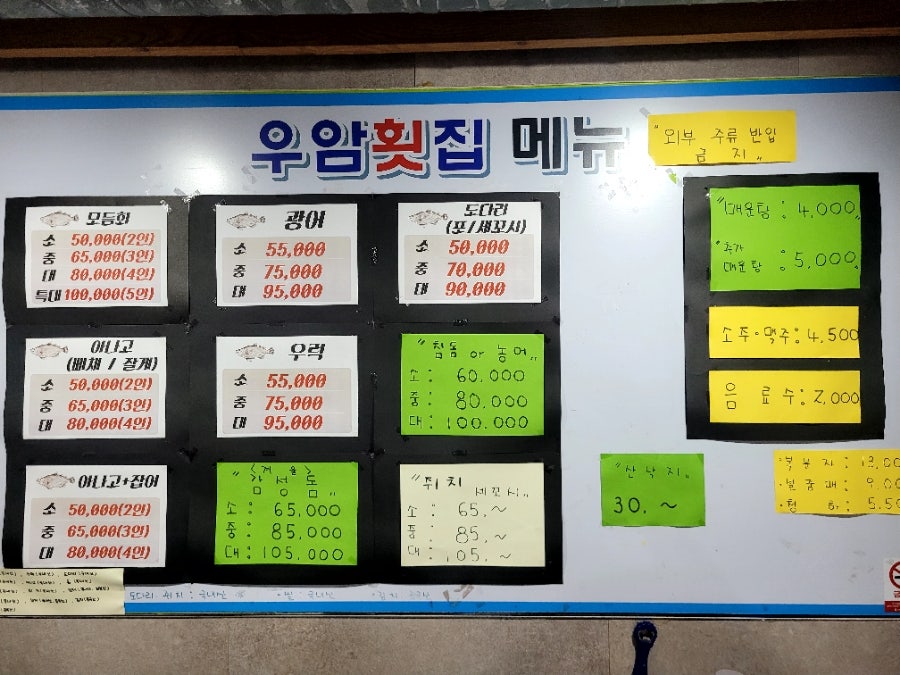 우암횟집 메뉴
"외부 주류 반입
금지"
모듬회
소 50,000(2인)
중 65,000(3인)
대 80,000(4인)
특대 100,000(5인)
광어
소 55,000
중 75,000
대 95,000
도다리
(포/세꼬시)
소 50,000
중 70,000
대 90,000
"매운탕 : 4,000"
"추가
매운탕 : 5,000"
아나고
(뼈채 / 잘게)
소 50,000(2인)
중 65,000(3인)
대 80,000(4인)
우럭
소 55,000
중 75,000
대 95,000
"참돔 or 농어"
소 : 60.000
중 : 80.000
대 : 100.000
소주·맥주 : 4,500
음료수 : 2,000
아나고+잡어
소 50,000(2인)
중 65,000(3인)
대 80,000(4인)
"<겨울>
감성돔"
소 : 65,000
중 : 85,000
대 : 105,000
"쥐치
세꼬시"
소 : 65.~
중 : 85.~
대 : 105.~
"산낙지"
30. ~
·복분자
·청하
도다리 쥐치 : 국내산